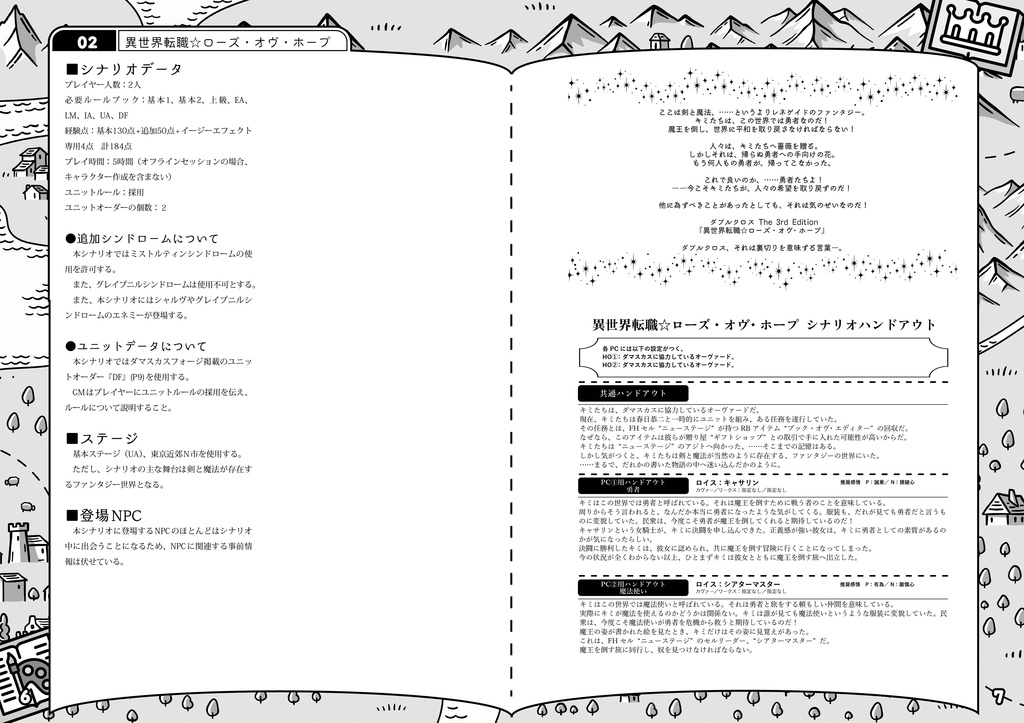 02
異世界転職☆ローズ・オヴ・ホープ
■シナリオデータ
プレイヤー人数：2人
必要ルールブック：基本1、基本2、上級、EA、
LM、IA、UA、DF
経験点：基本130点+追加50点+イージーエフェクト
専用4点　計184点
プレイ時間：5時間（オフラインセッションの場合、
キャラクター作成を含まない）
ユニットルール：採用
ユニットオーダーの個数：２
●追加シンドロームについて
本シナリオではミストルティンシンドロームの使
用を許可する。
また、グレイプニルシンドロームは使用不可とする。
また、本シナリオにはシャルヴやグレイプニルシ
ンドロームのエネミーが登場する。
●ユニットデータについて
本シナリオではダマスカスフォージ掲載のユニッ
トオーダー『DF』(P9)を使用する。
GMはプレイヤーにユニットルールの採用を伝え、
ルールについて説明すること。
■ステージ
基本ステージ（UA）、東京近郊N市を使用する。
ただし、シナリオの主な舞台は剣と魔法が存在す
るファンタジー世界となる。
■登場NPC
本シナリオに登場するNPCのほとんどはシナリオ
中に出会うことになるため、NPCに関連する事前情
報は伏せている。
6
ここは剣と魔法、……というよりレネゲイドのファンタジー。
キミたちは、この世界では勇者なのだ！
魔王を倒し、世界に平和を取り戻さなければならない！
人々は、キミたちへ薔薇を贈る。
しかしそれは、帰らぬ勇者への手向けの花。
もう何人もの勇者が、帰ってこなかった。
これで良いのか、……勇者たちよ！
――今こそキミたちが、人々の希望を取り戻すのだ！
他に為すべきことがあったとしても、それは気のせいなのだ！
ダブルクロス The 3rd Edition
「異世界転職☆ローズ・オヴ・ホープ」
ダブルクロス、それは裏切りを意味する言葉―。
異世界転職☆ローズ・オヴ・ホープ シナリオハンドアウト
各PCには以下の設定がつく。
HO①：ダマスカスに協力しているオーヴァード。
HO②：ダマスカスに協力しているオーヴァード。
共通ハンドアウト
キミたちは、ダマスカスに協力しているオーヴァードだ。
現在、キミたちは春日恭二と一時的にユニットを組み、ある任務を遂行していた。
その任務とは、FHセル“ニューステージ”が持つRBアイテム“ブック・オヴ・エディター”の回収だ。
なぜなら、このアイテムは彼らが贈り屋“ギフトショップ”との取引で手に入れた可能性が高いからだ。
キミたちは“ニューステージ”のアジトへ向かった、……そこまでの記憶はある。
しかし気がつくと、キミたちは剣と魔法が当然のように存在する、ファンタジーの世界にいた。
……まるで、だれかの書いた物語の中へ迷い込んだかのように。
PC①用ハンドアウト
勇者
ロイス：キャサリン
推奨感情　P：誠意／N：猜疑心
カヴァー／ワークス：指定なし／指定なし
キミはこの世界では勇者と呼ばれている。それは魔王を倒すために戦う者のことを意味している。
周りからそう言われると、なんだか本当に勇者になったような気がしてくる。服装も、だれが見ても勇者だと言うも
のに変貌していた。民衆は、今度こそ勇者が魔王を倒してくれると期待しているのだ！
キャサリンという女騎士が、キミに決闘を申し込んできた。正義感が強い彼女は、キミに勇者としての素質があるの
かが気になったらしい。
決闘に勝利したキミは、彼女に認められ、共に魔王を倒す冒険に行くことになってしまった。
今の状況が全くわからない以上、ひとまずキミは彼女とともに魔王を倒す旅へ出立した。
PC②用ハンドアウト
魔法使い
ロイス：シアターマスター
推奨感情　P：有為／N：敵愾心
カヴァー／ワークス：指定なし／指定なし
キミはこの世界では魔法使いと呼ばれている。それは勇者と旅をする頼もしい仲間を意味している。
実際にキミが魔法を使えるのかどうかは関係ない。キミは誰が見ても魔法使いというような服装に変貌していた。民
衆は、今度こそ魔法使いが勇者を危機から救うと期待しているのだ！
魔王の姿が書かれた絵を見たとき、キミだけはその姿に見覚えがあった。
これは、FHセル“ニューステージ”のセルリーダー、“シアターマスター”だ。
魔王を倒す旅に同行し、奴を見つけなければならない。
7